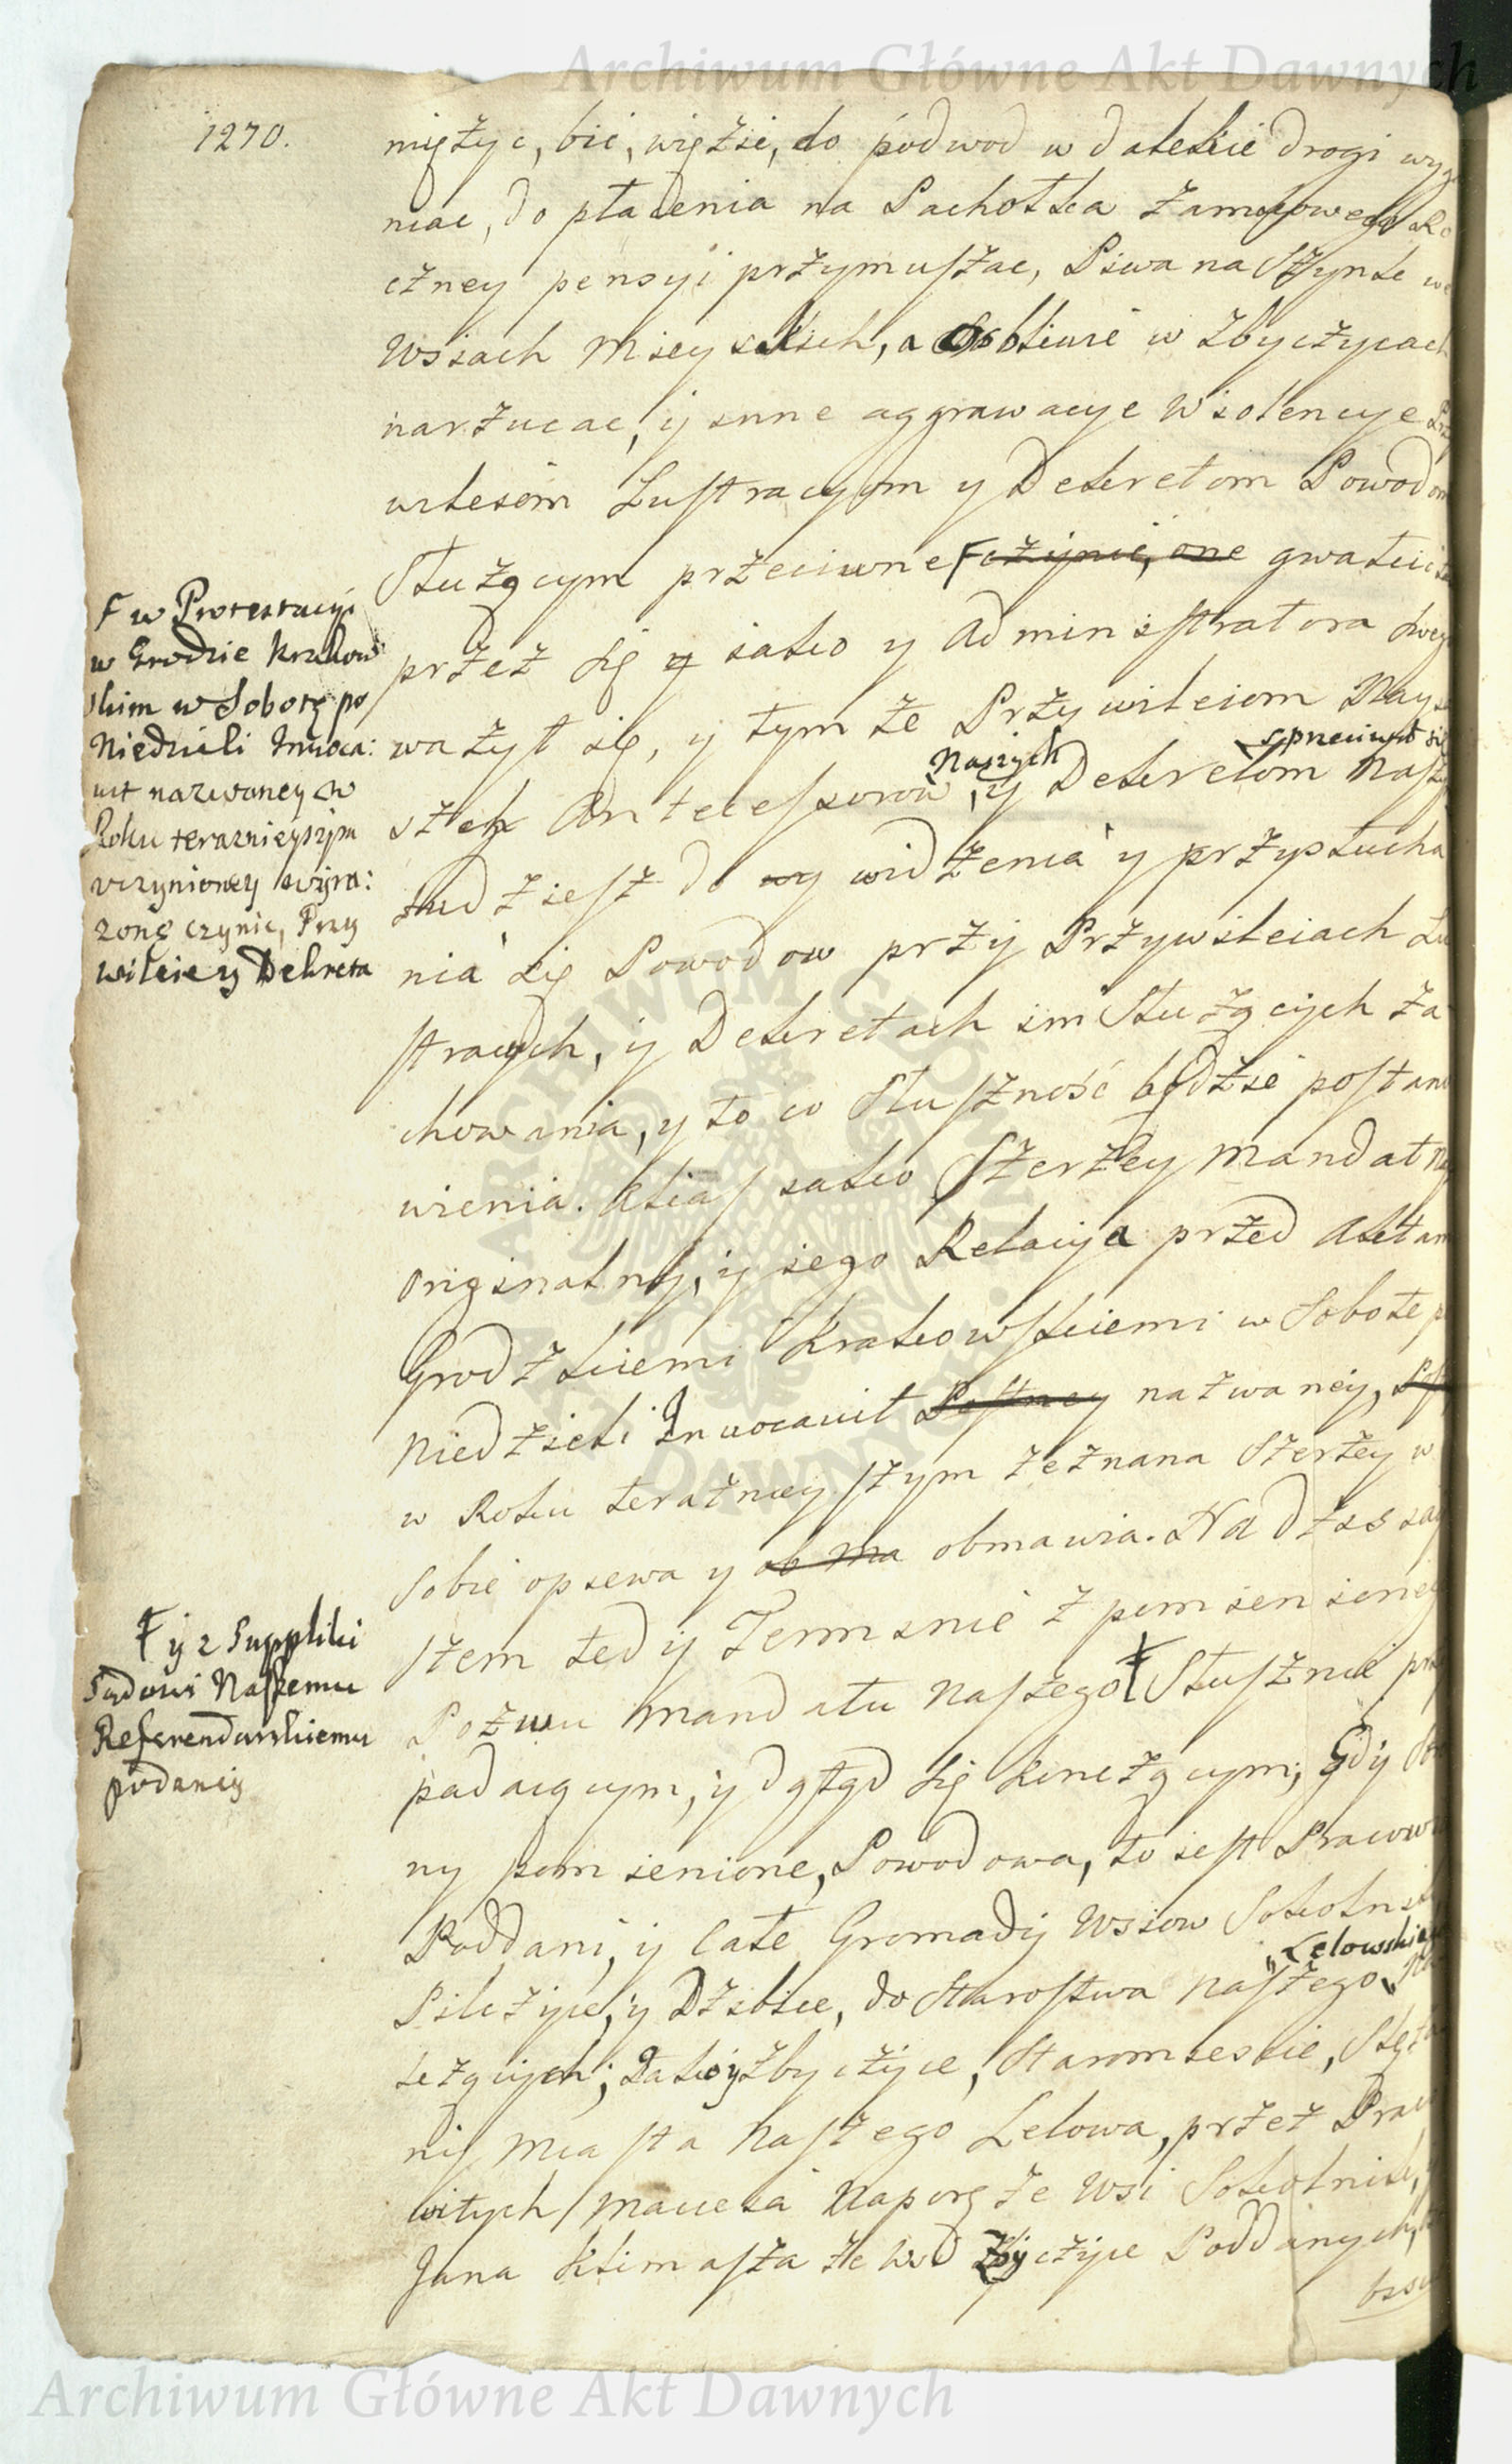 Archiwum Główne Akt Dawnych
1270.
mięzyc, bić, więzić, do podwod w dalekie drogi wyga
niać, do płacenia na Pachołka zamkowego Ro
czney pensyi przymuszac, Piwa na Szynk we
Wsiach Mieyskich, a osobliwie w Zbyczycach
narzucac, y inne aggrawacye Wiolencye Przy
wileiom Lustracyom y Dekretom Powodom
Służącym przeciwne F czynić, one gwałcić ta
przez się y iako y Administratora swego
ważył się, y tym że Przywileiom Nay
szch Antecessorow Naszych, y Dekretom Naszym sprzeciwił się
sudzież do wy widzenia y przysłucha
nia się Powodow przy Przywileiach Lu
stracych, y Dekretach im Służących za
chowania, y to co Słuszność będzie postano
wienia. Alias iako Szerzey Mandat Na
originalny, y iego Relacya przed Aktami
Grodzkiemi Krakowskiemi w Sobote po
Niedzieli Invocavit Postney nazwaney, Post
w Roku teraznieyszym zeznana Szerzey w
Sobie opiewa y ob ma obmawia. Na dzisiay
szem tedy Terminie z pomienionego
Pozwu Mandatu Naszego F Słusznie przy
padaiącym, y dotąd się kinczącym, Gdy Stro
ny pomienione, Powodowa, to iest Pracowici
Poddani, y Całe Gromady Wsiow Sokolniki
Pilczyce, y Dzibice, do Starostwa Naszego Lelowskiego Na
leżących; Dako y Zbyczyce, Staromieście, Slęza
ny Miasta Naszego Lelowa, przez Praco
witych Macieia Naporę ze Wsi Sokolnik,
Jana Klimasza ze Wsi Zbyczyce Poddanych,
F w Protestacyi
w Grodzie Krakow
skim w Sobotę po
Niedzieli Invoca:
vit nazwaney w
Roku teraznieyszym
uczynioney wyra:
żone czynic, Przy
wileie y Dekreta
F y z Suppliki
Sądowi Naszemu
Referendarskiemu
podaney
ARCHIWUM GŁÓWNE AKT DAWNYCH
Archiwum Główne Akt Dawnych